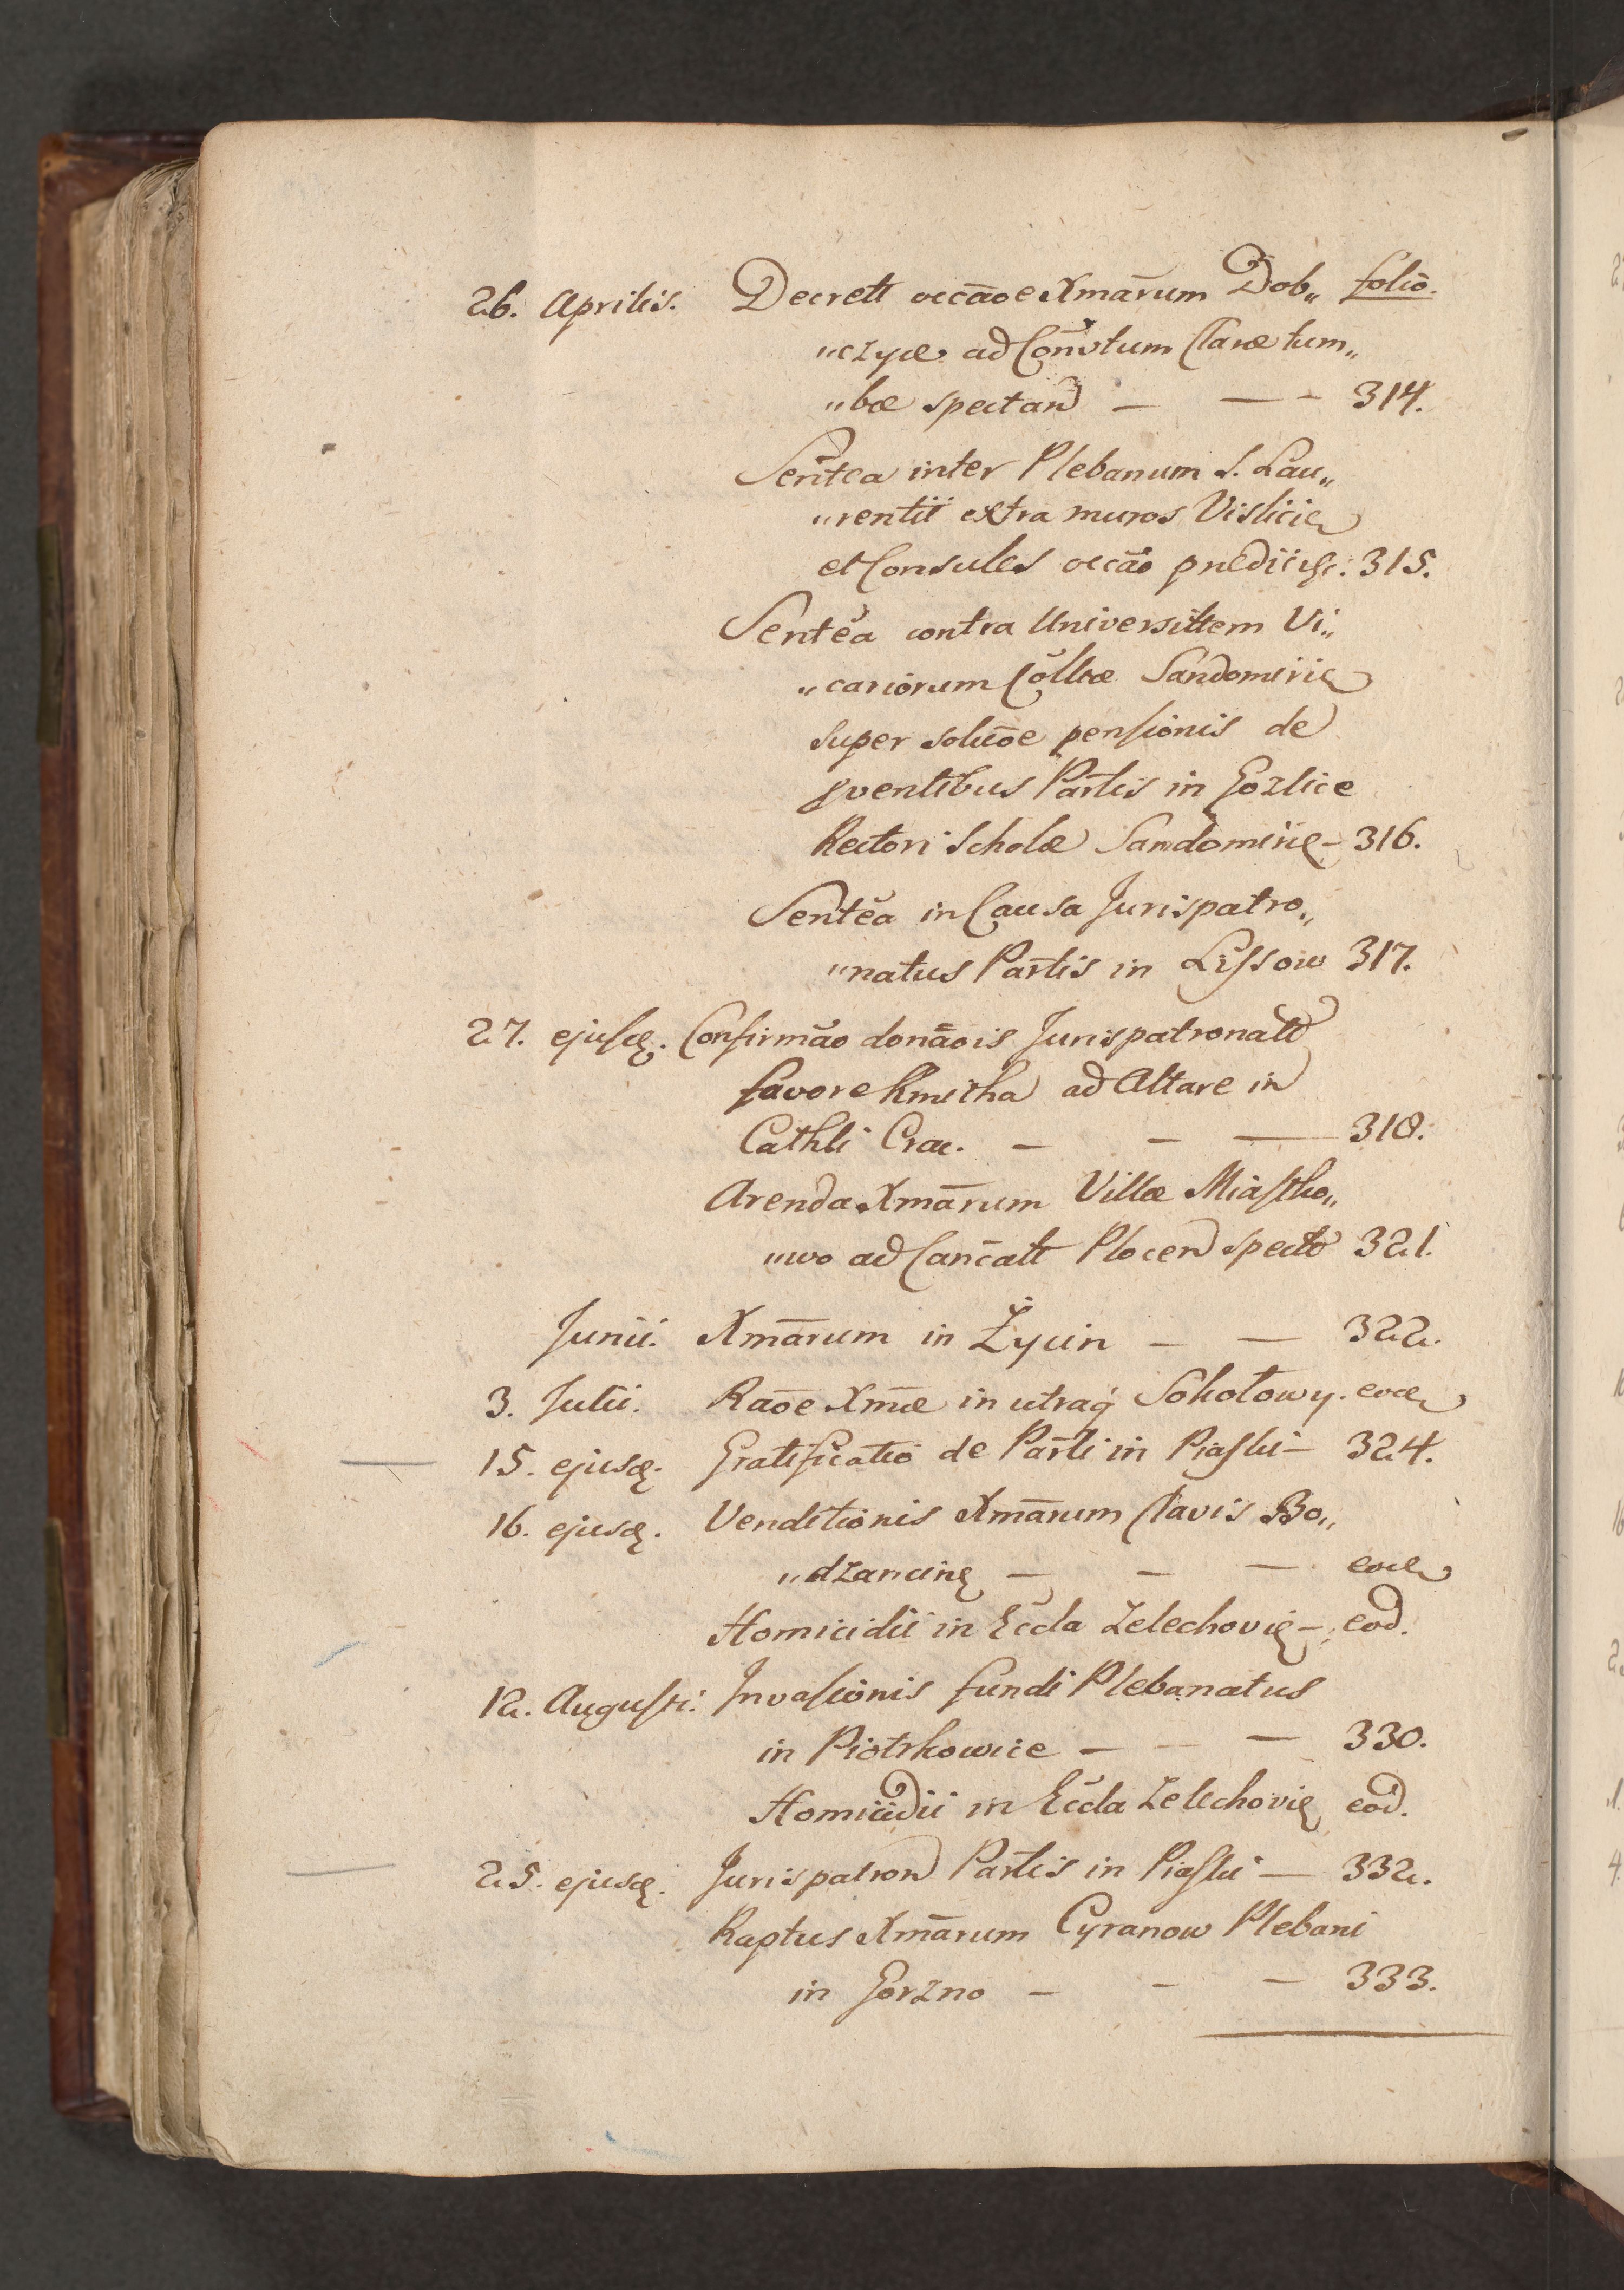 26. Aprilis. Decreti occãoe Xmãrum Dob„ folio.
„czyce ad Conv̄tum Claræ tum„
„bæ spectand — — — 314.
Sent̃ea inter Plebanum S. Lau„
„rentii extra muros Vislicien
et Consules occão prædiiss: 315.
Sentẽa contra Universittem Vi„
„cariorum Coll̃tæ Sandomirien
super soluõe pensionis de
proventibus Par̃lis in Gozlice
Rectori Scholæ Sandomirię – 316.
Sentẽa in Causa Jurispatro„
„natus Par̃lis in Lissow 317.
27. ejusdę. Confirmão donãois Jurispatronatus
favore Kmitha ad Altare in
Cathli Crac. — — — 318.
Arenda Xmãrum Villæ Miastko„
„wo ad Canc̃att Plocen spectt 321.
Junii. Xmãrum in Życin — — 322.
3. Julii. Raõe Xmæ in utraq́ Sokołowy. eod
15. ejusdę. Gratificatio de Par̃li in Piaski — 324.
16. ejusdę. Venditionis Xmãrum Clavis Bo„
„dzancinę — — — eod
Homicidii in Ecc̃la Zelechovię — eod.
12. Augusti. Invasionis fundi Plebanatus
in Piotrkowice — — — 330.
Homicidii in Ecc̃la Zelechovię eod.
25. ejusdę. Jurispatron Par̃lis in Piaski — 332.
Raptus Xmãrum Cyranow Plebani
in Gorzno — — — 333.